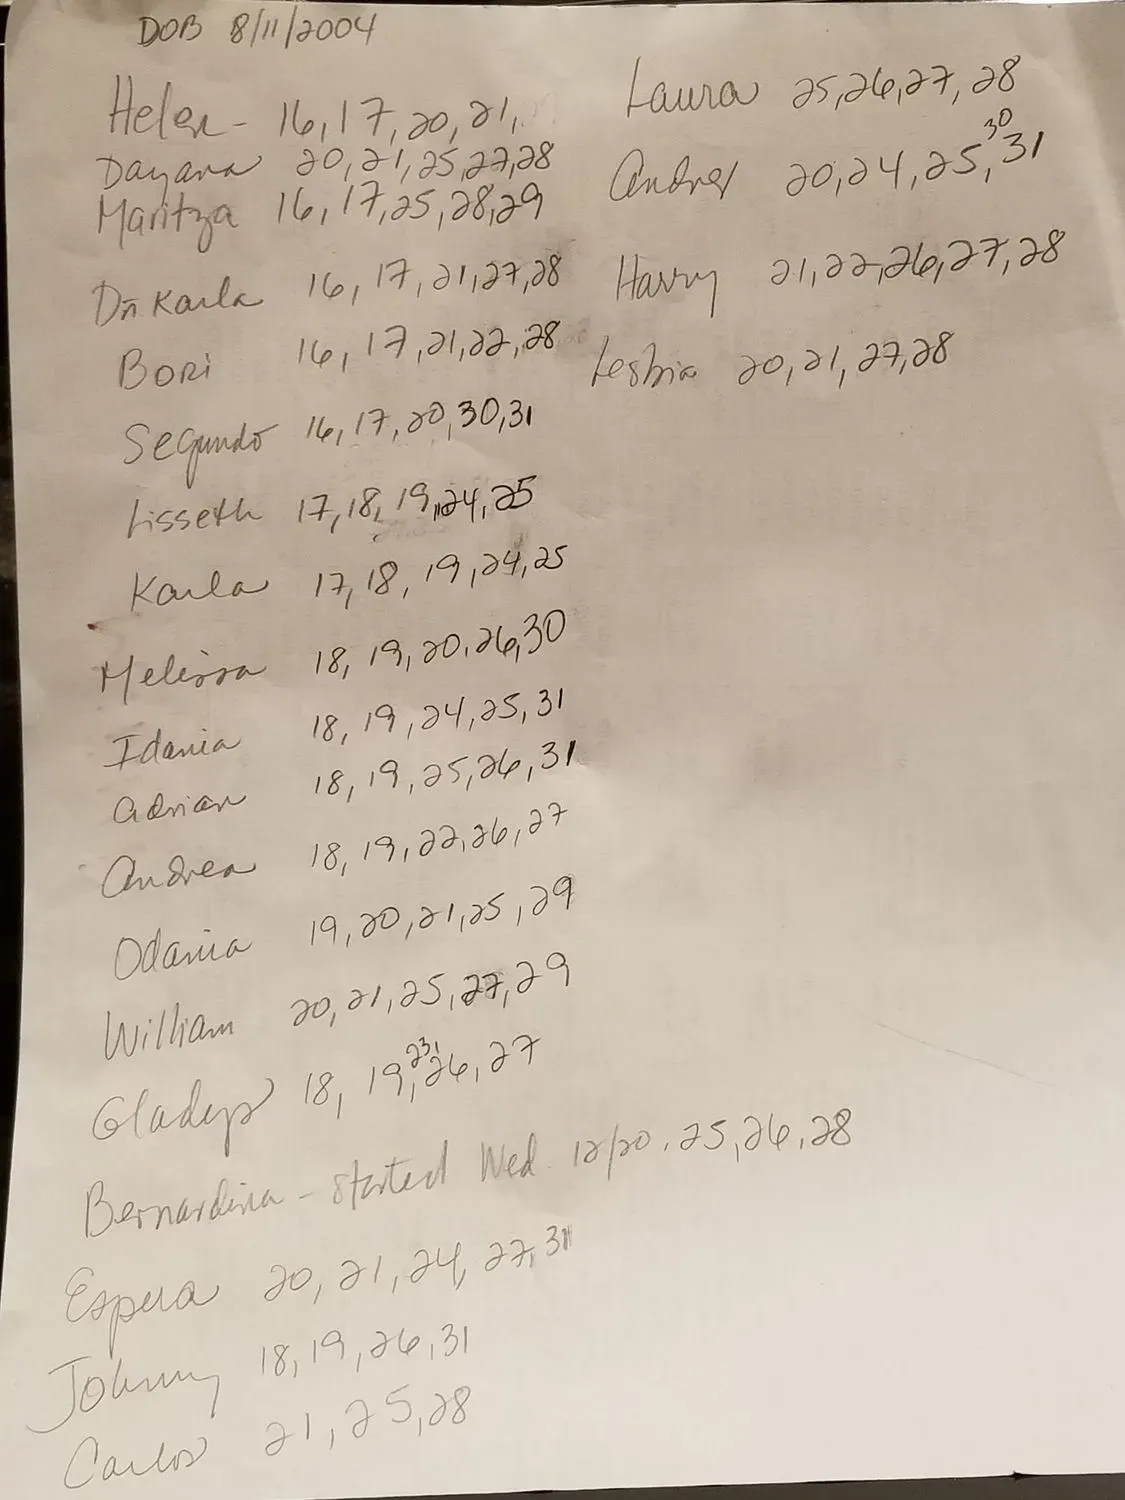 DOB 8/11/2004
Helen - 16, 17, 20, 21,
Dayana 20, 21, 25, 27, 28
Maritza 16, 17, 25, 28, 29
Dr. Karla 16, 17, 21, 27, 28
Bori 16, 17, 21, 22, 28
Segundo 16, 17, 20, 30, 31
Lisseth 17, 18, 19, 24, 25
Karla 17, 18, 19, 24, 25
Melissa 18, 19, 20, 26, 30
Idania 18, 19, 24, 25, 31
Adrian 18, 19, 25, 26, 31
Andrea 18, 19, 22, 26, 27
Odania 19, 20, 21, 25, 29
William 20, 21, 25, 27, 29
Gladys 18, 19, 23, 26, 27
Bernardina - started Wed. 12/20. 25, 26, 28
Espera 20, 21, 24, 27, 31
Johnny 18, 19, 26, 31
Carlos 21, 25, 28
Laura 25, 26, 27, 28
Andres 20, 24, 25, 30, 31
Harry 21, 22, 26, 27, 28
Lesbia 20, 21, 27, 28